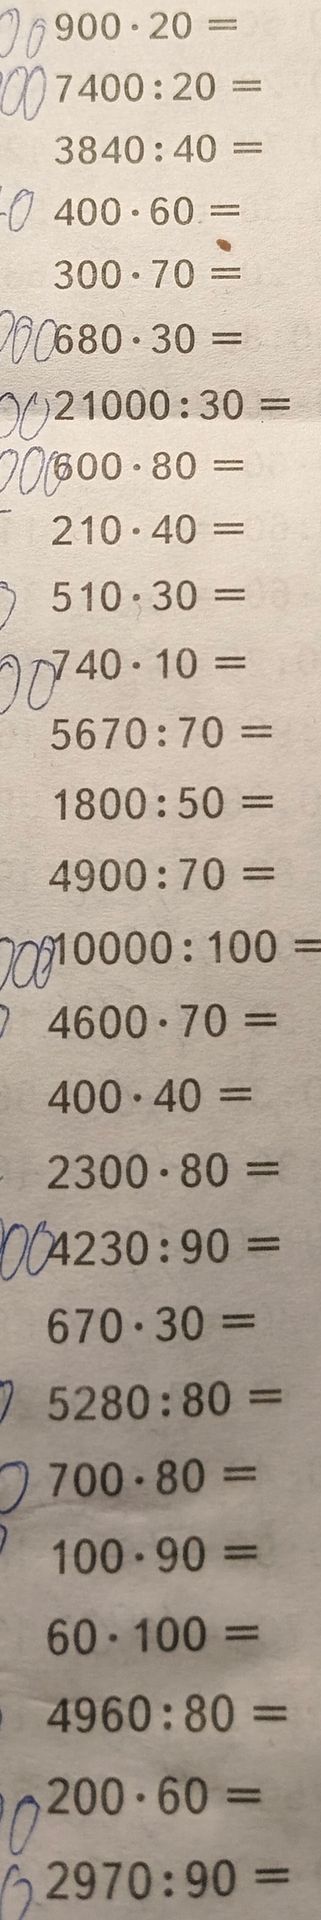 900·20 =
7400:20 =
3840:40 =
400·60 =
300·70 =
680·30 =
21000:30 =
600·80 =
210·40 =
510·30 =
740·10 =
5670:70 =
1800:50 =
4900:70 =
10000:100 =
4600·70 =
400·40 =
2300·80 =
4230:90 =
670·30 =
5280:80 =
700·80 =
100·90 =
60·100 =
4960:80 =
200·60 =
2970:90 =